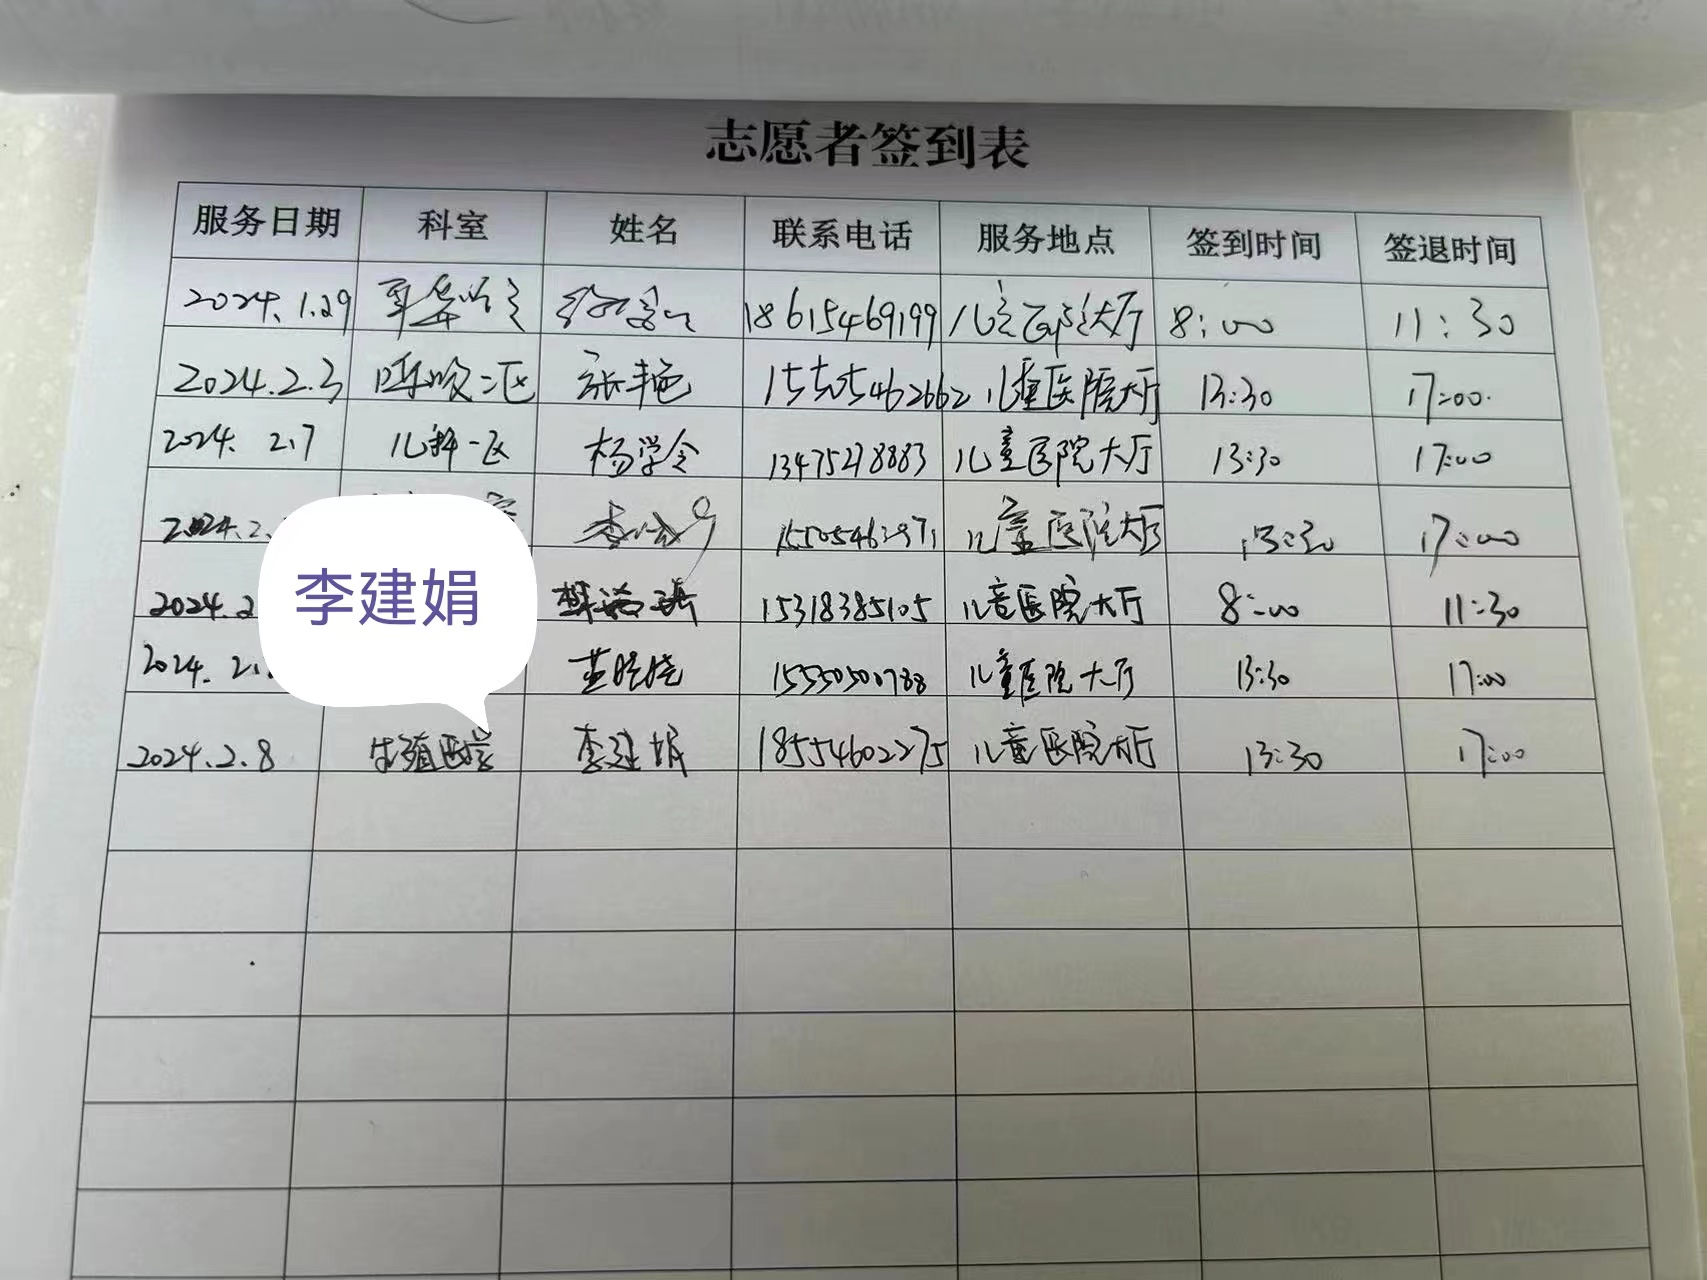 志愿者签到表
服务日期 科室 姓名 联系电话 服务地点 签到时间 签退时间
2024.1.29 18615469199 儿童医院大厅 8:00 11:30
2024.2.3 呼吸二区 张艳 15505462662 儿童医院大厅 13:30 17:00.
2024. 2.7 儿科一区 杨学会 13475278883 儿童医院大厅 13:30 17:00
2024.2. 儿童医院大厅 13:30 17:00
2024.2 15318385105 儿童医院大厅 8:00 11:30
2024. 2. 15550500788 儿童医院大厅 13:30 17:00
李建娟
2024.2.8 生殖医学 李建娟 18554602275 儿童医院大厅 13:30 17:00